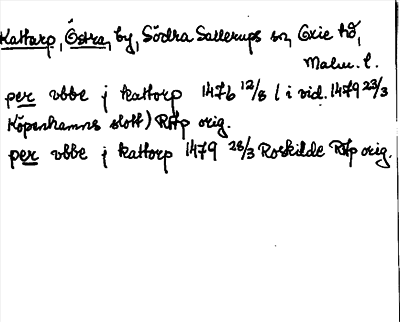 Kattarp, Östra, by, Södra Sallerups sn, Oxie hd,
Malm. l.
per vbbe j kattorp 1476 12/8 (i vid. 1479 23/3
Köpenhamns slott) RAp orig.
per vbbe j kattorp 1479 28/3 Roskilde RAp orig.